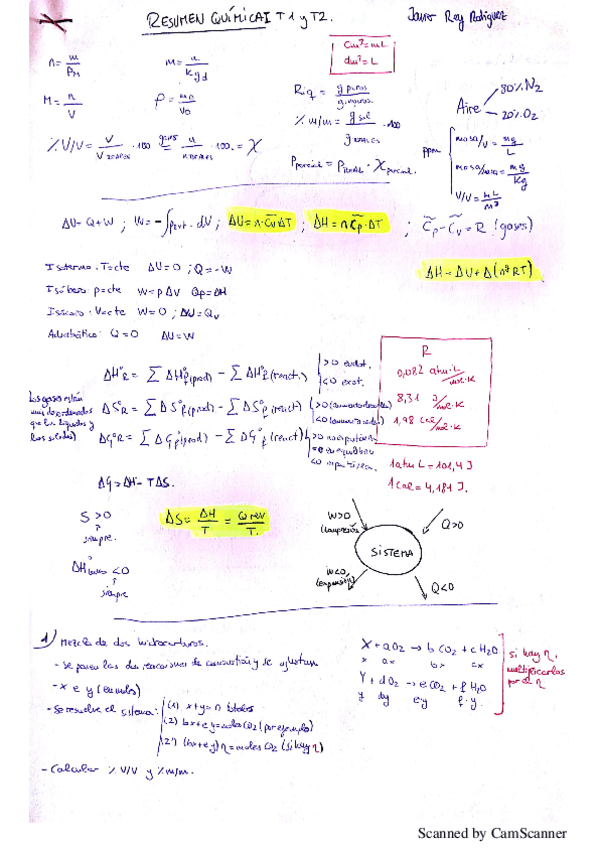 RESUMEN QUÍMICA I T1 y T2.
Javier Rey Rodríguez
n = m/PM
M = n/V
m = n/kg d
Cm³ = mL
dm³ = L
Riq = g puros/g impuros
% m/m = g sol/g totales · 100
Aire
80% N₂
20% O₂
% V/V = V/V totales · 100 = gases n/n totales · 100 = X
P parcial = P total · X parcial.
ppm
masa/V = mg/L
masa/masa = mg/Kg
V/V = mL/m³
ΔU = Q + W ; W = -∫p ext · dV ; ΔU = n·C̃v ΔT ; ΔH = n C̃p · ΔT ; C̃p - C̃v = R (gases)
ΔH = ΔU + Δ(nº RT)
Isotermo. T=cte ΔU = 0 ; Q = -W
Isóbaro. p=cte W = p ΔV Qp = ΔH
Isocoro. V=cte W = 0 ; ΔU = Qv
Adiabático. Q = 0 ΔU = W
ΔH°R = Σ ΔH°f (prod) - Σ ΔH°f (react.)
>0 endot.
<0 exot.
Los gases están
más desordenados
que los líquidos y
los sólidos)
ΔS°R = Σ Δ S°f (prod) - Σ Δ S°f (react)
ΔG°R = Σ ΔG°f (prod) - Σ ΔG°f (react)
R
0,082 atm·L/mol·K
8,31 J/mol·K
1,98 cal/mol·K
1 atm L = 101,4 J
1 cal = 4,184 J.
ΔG = ΔH - TΔS.
S > 0
siempre.
ΔS = ΔH/T = Q rev/T.
<0
siempre
W>0
(compresión)
Q>0
SISTEMA
W<0
(expansión)
Q<0
1) Mezcla de dos hidrocarburos.
- Se ponen las dos reacciones de combustión y se ajustan
- x e y (moles)
- Se resuelve el sistema:
(1) x+y = n totales
(2) bx+ey = moles CO₂ (por ejemplo)
(2') (bx+ey) η = moles CO₂ (si hay η)
- Calcular % V/V y % m/m.
X + aO₂ → b CO₂ + c H₂O
x ax bx cx
Y + dO₂ → e CO₂ + f H₂O
y dy ey f·y
si hay η.
multiplicarlos
por el η
Scanned by CamScanner